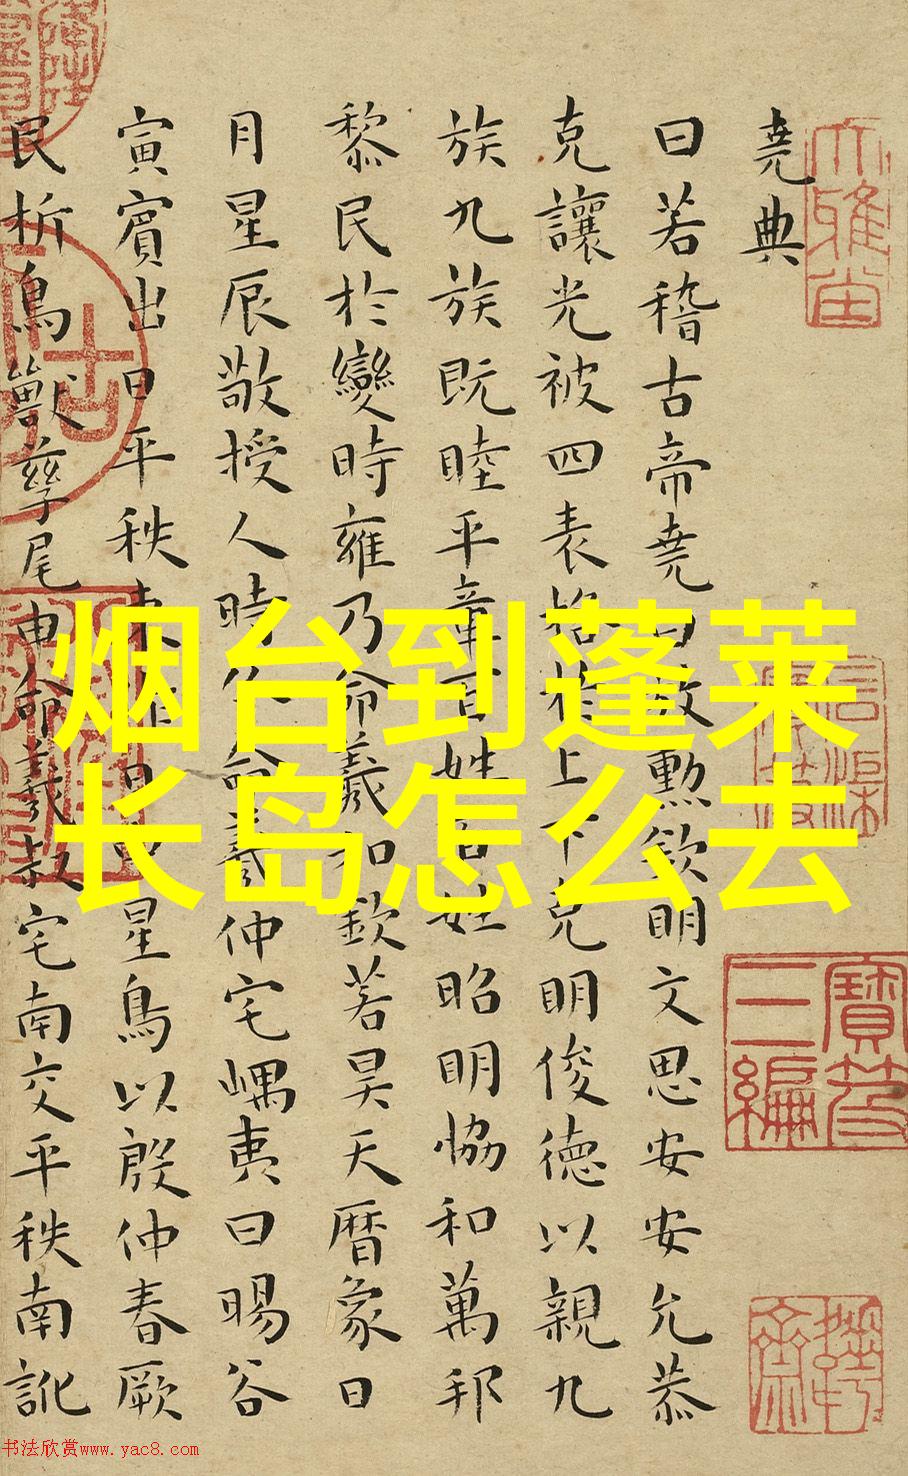 堯典
曰若稽古帝堯曰放勳欽明文思安安允恭
克讓光被四表格於上下克明俊德以親九
族九族既睦平章百姓百姓昭明恊和萬邦
黎民於變時雍乃命羲和欽若昊天曆象日
月星辰敬授人時分命羲仲宅嵎夷曰暘谷
寅賓出日平秩東作日中星鳥以殷仲春厥
民析鳥獸孳尾申命羲叔宅南交平秩南訛
烟台到蓬莱
长岛怎么去
寶笈
三編
书法欣赏www.yac8.com